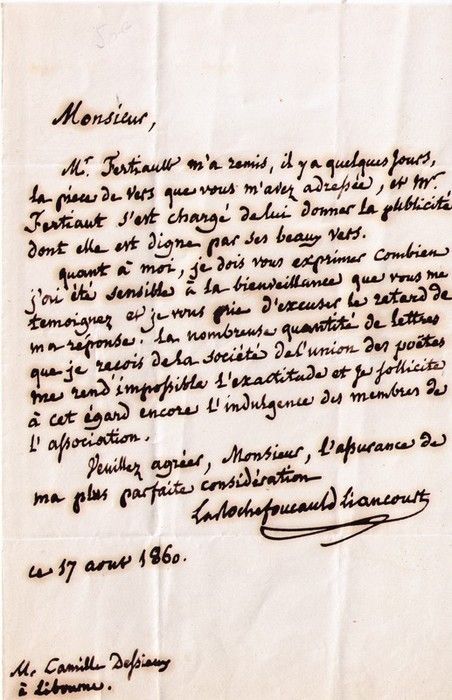 Monsieur,
Mr. Fertiault m'a remis, il y a quelques jours,
la piece de vers que vous m'avez adressée, et Mr.
Fertiaut s'est chargé de lui donner la publicité
dont elle est digne par ses beaux vers.
quant à moi, je dois vous exprimer combien
j'ai été sensible à la bienveillance que vous me
temoignez et je vous prie d'excuser le retard de
ma réponse. La nombreuse quantité de lettres
que je reçois de la société de l'union des poëtes
me rend impossible l'exactitude et je sollicite
à cet égard encore l'indulgence des membres de
l'association.
Veuillez agréer, Monsieur, l'assurance de
ma plus parfaite considération
LaRochefoucauld Liancourt
ce 17 aout 1860.
M. Camille
à Libourne.